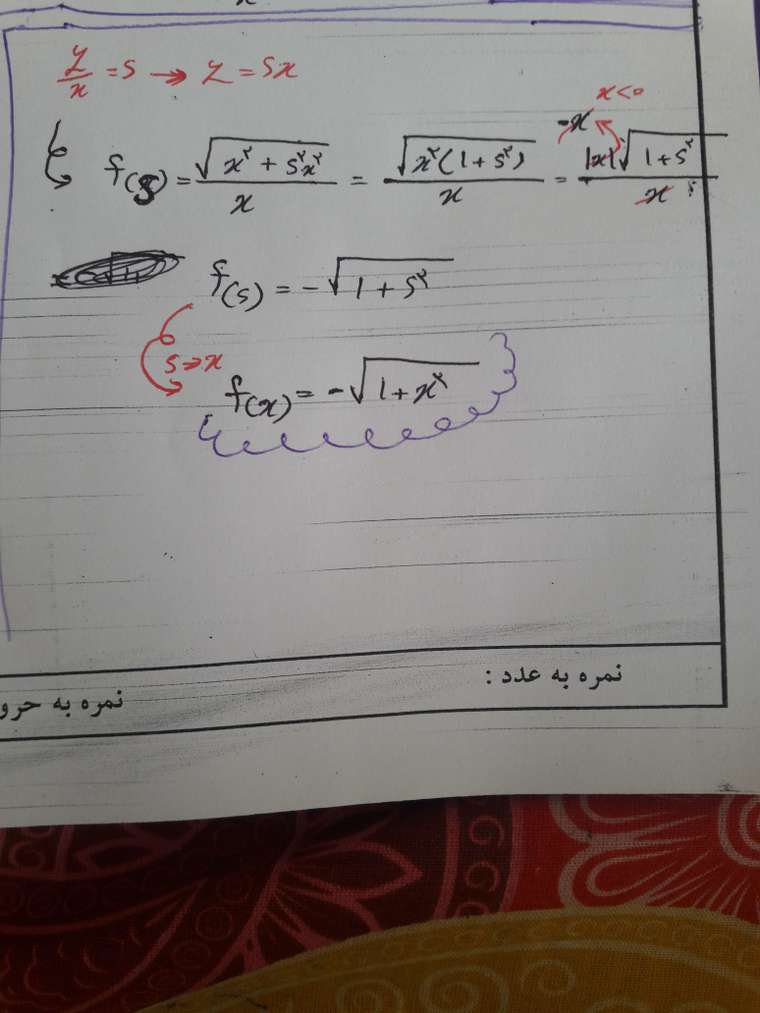 y/x = s → y = sx
x<0
-x
f(s) = √(x²+s²x²) / x = √(x²(1+s²)) / x = |x|√(1+s²) / x
f(s) = -√(1+s²)
s→x
f(x) = -√(1+x²)
نمره به عدد :
نمره به حرو